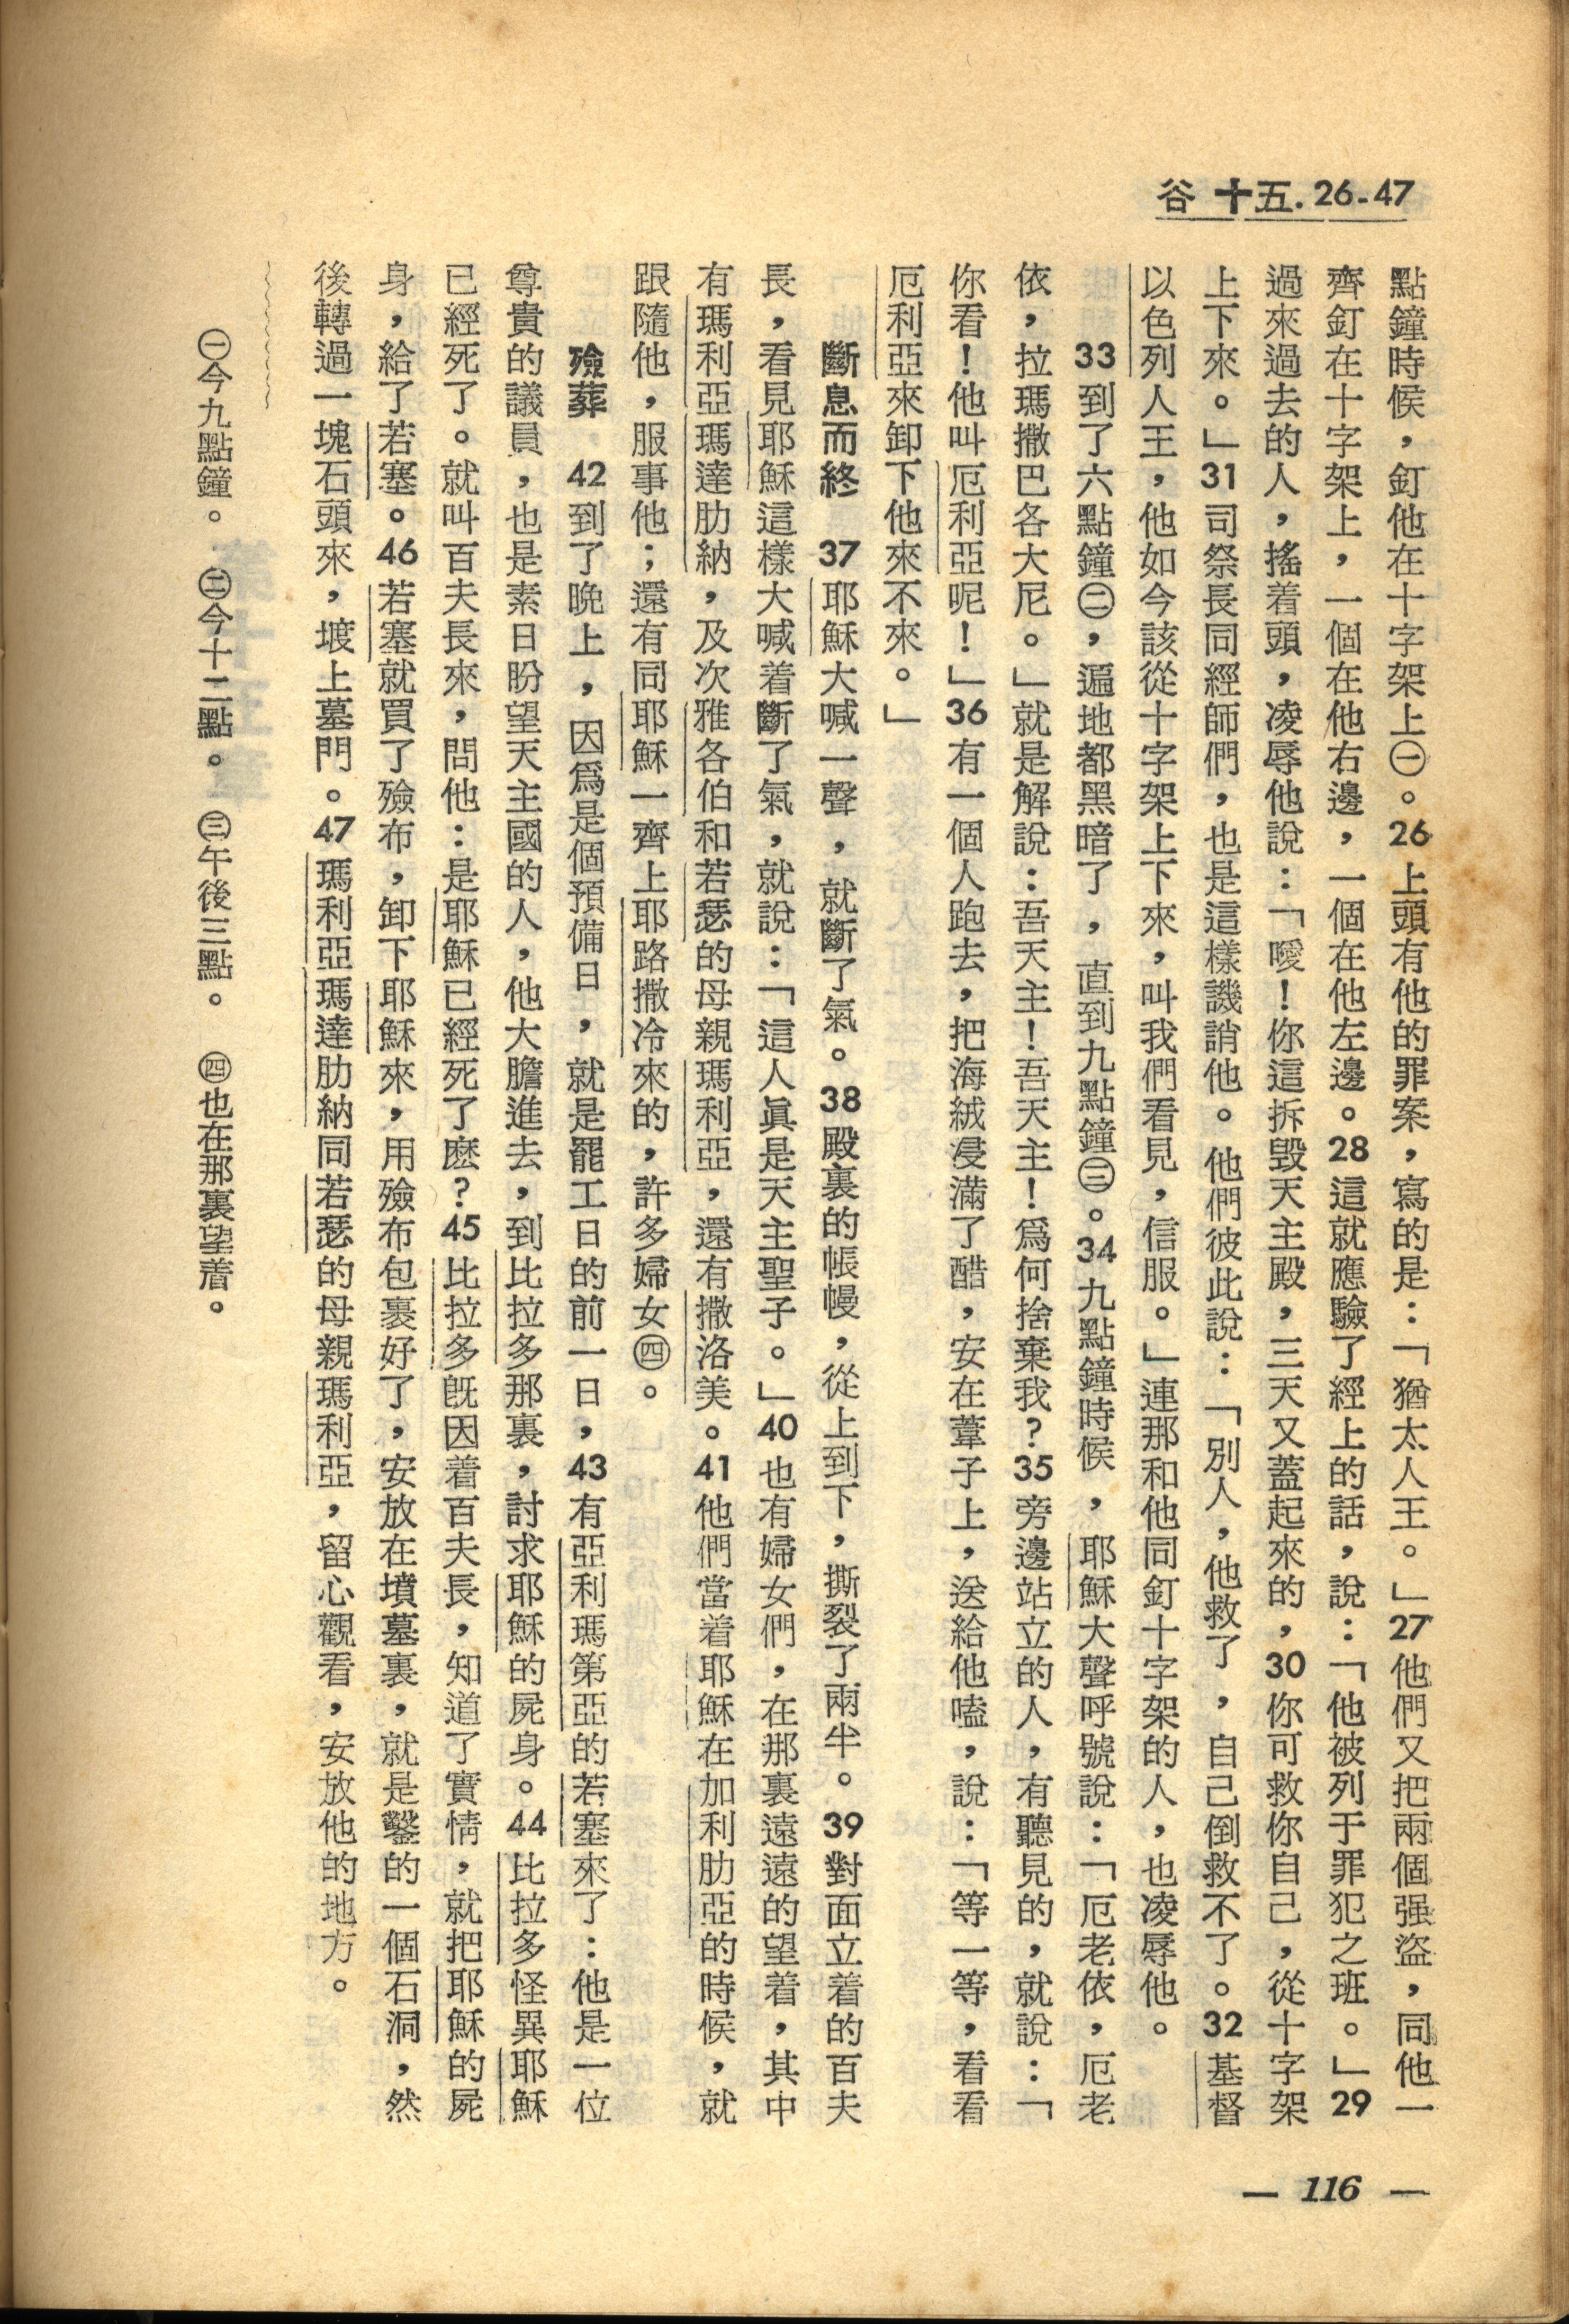 谷 十五. 26-47
點鐘時候，釘他在十字架上㊀。26上頭有他的罪案，寫的是：「猶太人王。」27他們又把兩個强盜，同他一
齊釘在十字架上，一個在他右邊，一個在他左邊。28這就應驗了經上的話，說：「他被列于罪犯之班。」29
過來過去的人，搖着頭，凌辱他說：「噯！你這拆毀天主殿，三天又蓋起來的，30你可救你自己，從十字架
上下來。」31司祭長同經師們，也是這樣譏誚他。他們彼此說：「別人，他救了，自己倒救不了。32基督
以色列人王，他如今該從十字架上下來，叫我們看見，信服。」連那和他同釘十字架的人，也凌辱他。
33到了六點鐘㊁，遍地都黑暗了，直到九點鐘㊂。34九點鐘時候，耶穌大聲呼號說：「厄老依，厄老
依，拉瑪撒巴各大尼。」就是解說：吾天主！吾天主！爲何捨棄我？35旁邊站立的人，有聽見的，就說：「
你看！他叫厄利亞呢！」36有一個人跑去，把海絨浸滿了醋，安在葦子上，送給他嗑，說：「等一等，看看
厄利亞來卸下他來不來。」
斷息而終 37耶穌大喊一聲，就斷了氣。38殿裏的帳幔，從上到下，撕裂了兩半。39對面立着的百夫
長，看見耶穌這樣大喊着斷了氣，就說：「這人眞是天主聖子。」40也有婦女們，在那裏遠遠的望着，其中
有瑪利亞瑪達肋納，及次雅各伯和若瑟的母親瑪利亞，還有撒洛美。41他們當着耶穌在加利肋亞的時候，就
跟隨他，服事他；還有同耶穌一齊上耶路撒冷來的，許多婦女㊃。
殮葬 42到了晚上，因爲是個預備日，就是罷工日的前一日，43有亞利瑪第亞的若塞來了：他是一位
尊貴的議員，也是素日盼望天主國的人，他大膽進去，到比拉多那裏，討求耶穌的屍身。44比拉多怪異耶穌
已經死了。就叫百夫長來，問他：是耶穌已經死了麽？45比拉多旣因着百夫長，知道了實情，就把耶穌的屍
身，給了若塞。46若塞就買了殮布，卸下耶穌來，用殮布包裹好了，安放在墳墓裏，就是鑿的一個石洞，然
後轉過一塊石頭來，堵上墓門。47瑪利亞瑪達肋納同若瑟的母親瑪利亞，留心觀看，安放他的地方。
㊀今九點鐘。 ㊁今十二點。 ㊂午後三點。 ㊃也在那裏望着。
— 116 —